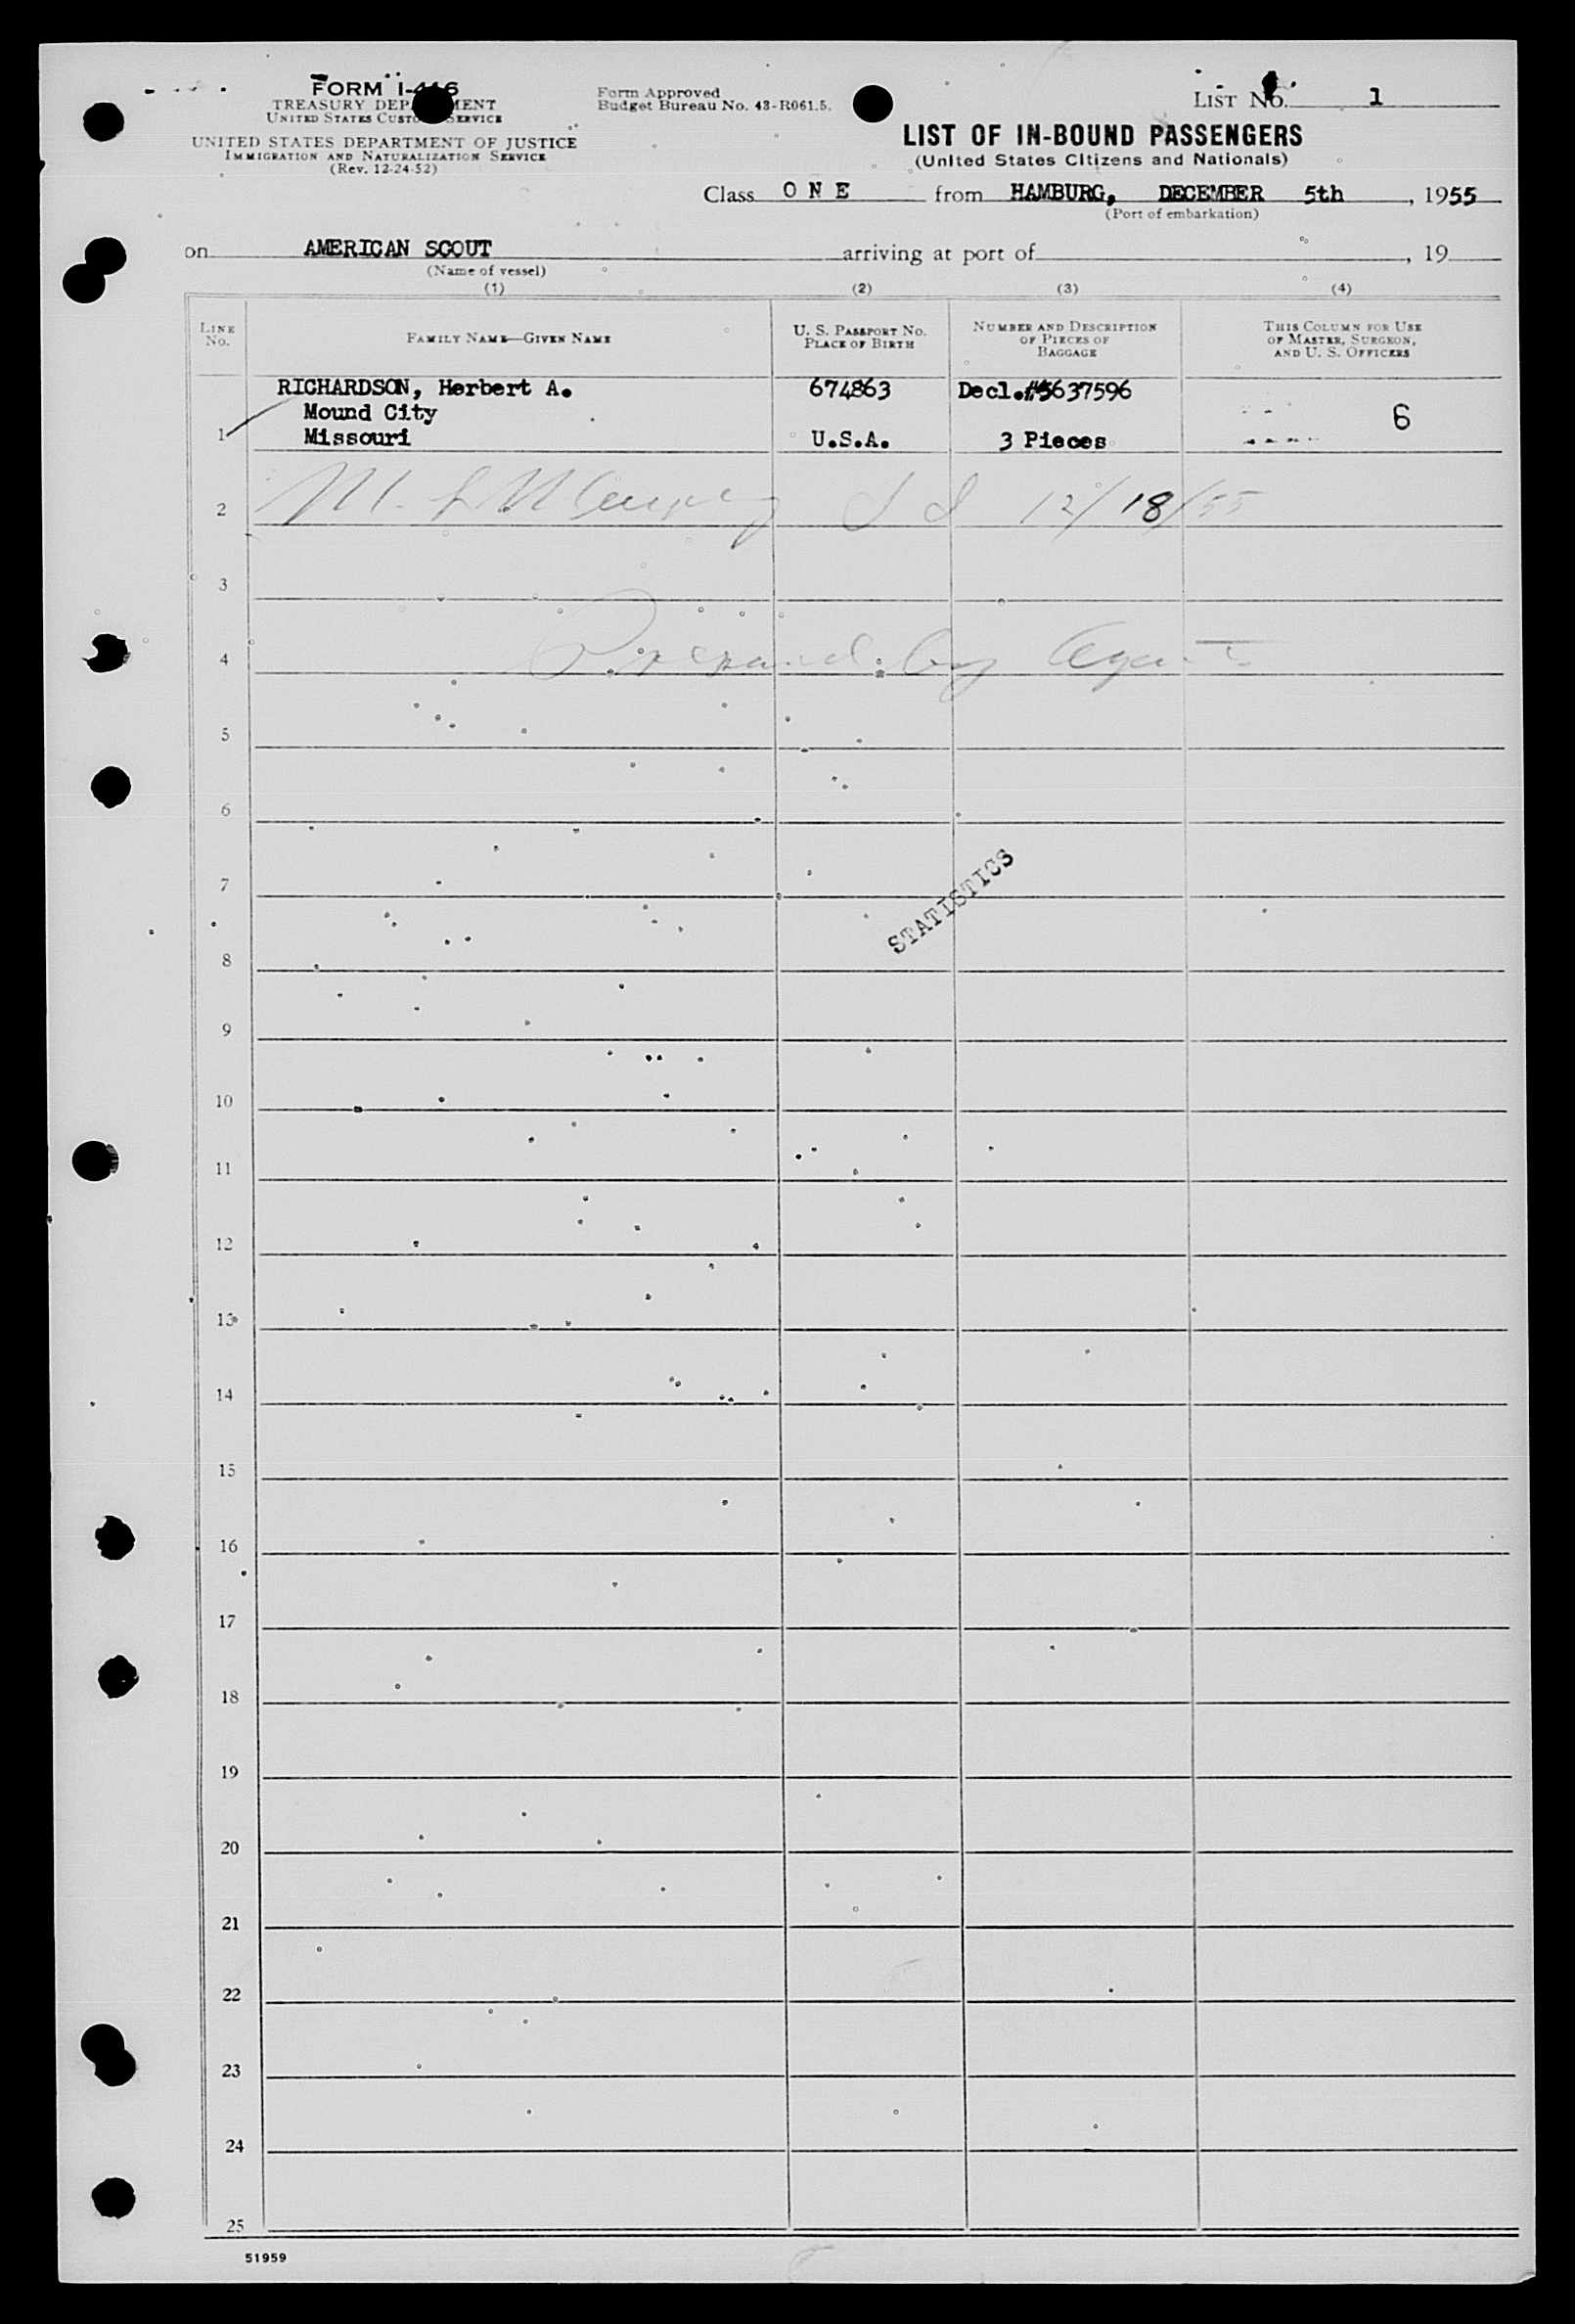 FORM I-416
TREASURY DEPARTMENT
UNITED STATES CUSTOMS SERVICE
UNITED STATES DEPARTMENT OF JUSTICE
IMMIGRATION AND NATURALIZATION SERVICE
(Rev. 12-24-52)
Form Approved
Budget Bureau No. 43-R061.5.
LIST No. 1
LIST OF IN-BOUND PASSENGERS
(United States Citizens and Nationals)
Class O N E from HAMBURG, DECEMBER 5th, 1955
(Port of embarkation)
on AMERICAN SCOUT arriving at port of , 19
(Name of vessel)
(1) (2) (3) (4)
LINE No. FAMILY NAME—GIVEN NAME U. S. PASSPORT No. PLACE OF BIRTH NUMBER AND DESCRIPTION OF PIECES OF BAGGAGE THIS COLUMN FOR USE OF MASTER, SURGEON, AND U. S. OFFICERS
RICHARDSON, Herbert A. 674863 Decl.#5637596
Mound City 6
1 Missouri U.S.A. 3 Pieces
2 12/18/55
3
4 Prepared by Agent
5
6
7
STATISTICS
8
9
10
11
12
13
14
15
16
17
18
19
20
21
22
23
24
25
51959